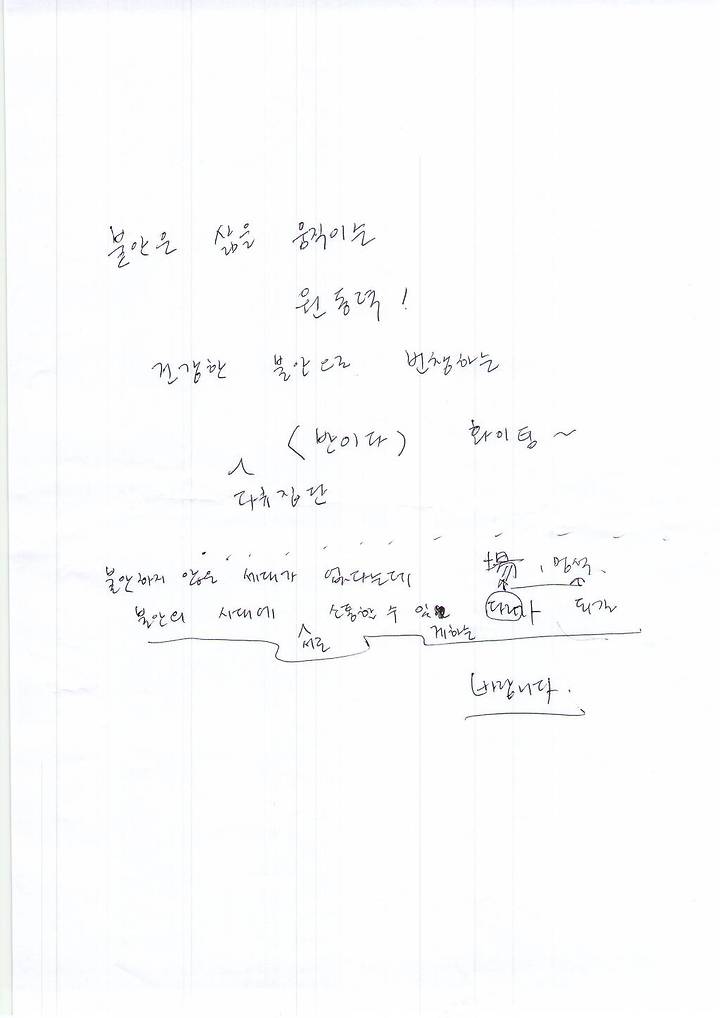 불안은 삶을 움직이는
원동력!
건강한 불안으로 번창하는
(반이다) 화이팅~
다큐집단
불안하지 않은 세대가 없다는데 場, 멍석.
불안의 시대에 소통할 수 있 되길
서로 게하는
바랍니다.